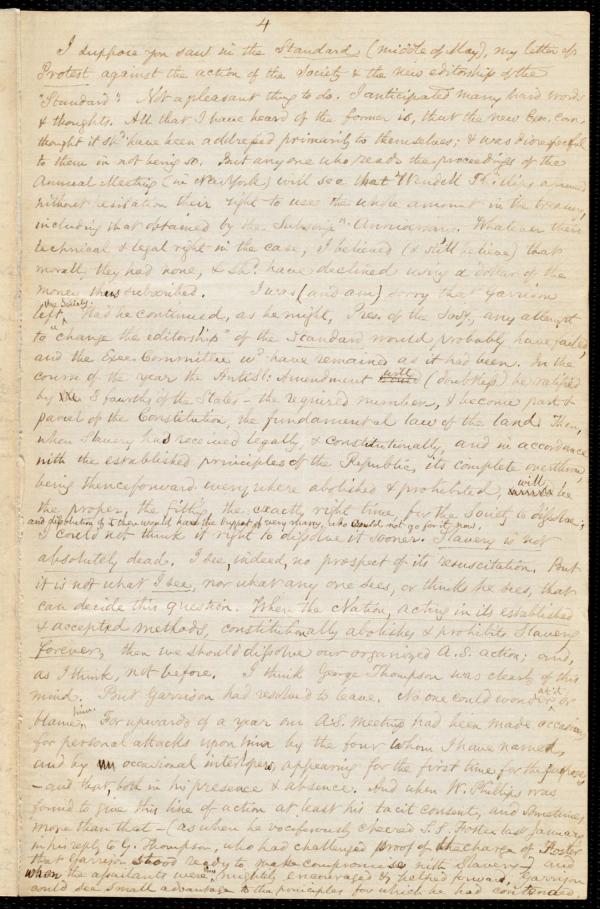 4
I suppose you saw in the Standard (middle of May), my letter of
Protest against the action of the Society & the new editorship of the
"Standard". Not a pleasant thing to do. I anticipated many hard words
& thoughts. All that I have heard of the former is, that the new Exe. Com.
thought it shd. have been addressed primarily to themselves; & was disrespectful
to them in not being so. But any one who reads the proceedings of the
Annual Meeting (in New York) will see that Wendell Phillips argued
without hesitation their right to use the whole amount in the treasury,
including that obtained by the Subscripn. Anniversary. Whatever their
technical & legal right in the case, I believed (& still believe) that
morally they had none, & shd. have declined using a dollar of the
money thus subscribed. I was (and am) sorry that Garrison
left the Society. Had he continued, as he might, Pres. of the Socy., any attempt
to "change the editorship" of the Standard would probably have failed,
and the Exec. Committee wd. have remained as it had been. In the
course of the year the Anti Sl: Amendment will (doubtless) be ratified
by 3 fourths of the States – the required number, & become part &
parcel of the Constitution, the fundamental law of the land. Then,
when Slavery had received legally, & constitutionally, and in accordance
with the established principles of the Republic, its complete overthrow,
being thenceforward every where abolished & prohibited, will be
the proper, the fitting, the exactly right time, for the Society to dissolve;
and dissolution of it then would have the support of very many, who could not go for it now.
I could not think it right to dissolve it sooner. Slavery is not
absolutely dead. I see, indeed, no prospect of its resuscitation. But
it is not what I see, nor what any one sees, or thinks he sees, that
can decide this question. When the Nation, acting in its established
& accepted methods, constitutionally abolishes & prohibits Slavery
forever, then we should dissolve our organized A.S. action; and,
as I think, not before. I think George Thompson was clearly of this
mind. But Garrison had resolved to leave. No one could wonder at it or
blame him. For upwards of a year our A.S. meetings had been made occasions
for personal attacks upon him by the four whom I have named,
and by occasional interlopers, appearing for the first time for the purpose,
– and that, both in his presence & absence. And when W. Phillips was
found to give this line of action at least his tacit consent, and sometimes
more than that – (as when he vociferously cheered S.S. Foster last January
in his reply to G. Thompson, who had challenged proof of the charge of Foster
that Garrison stood ready to make compromise with Slavery) and
when the assailants were thus mightily encouraged & helped forward, Garrison
could see small advantage to the principles for which he had contended.